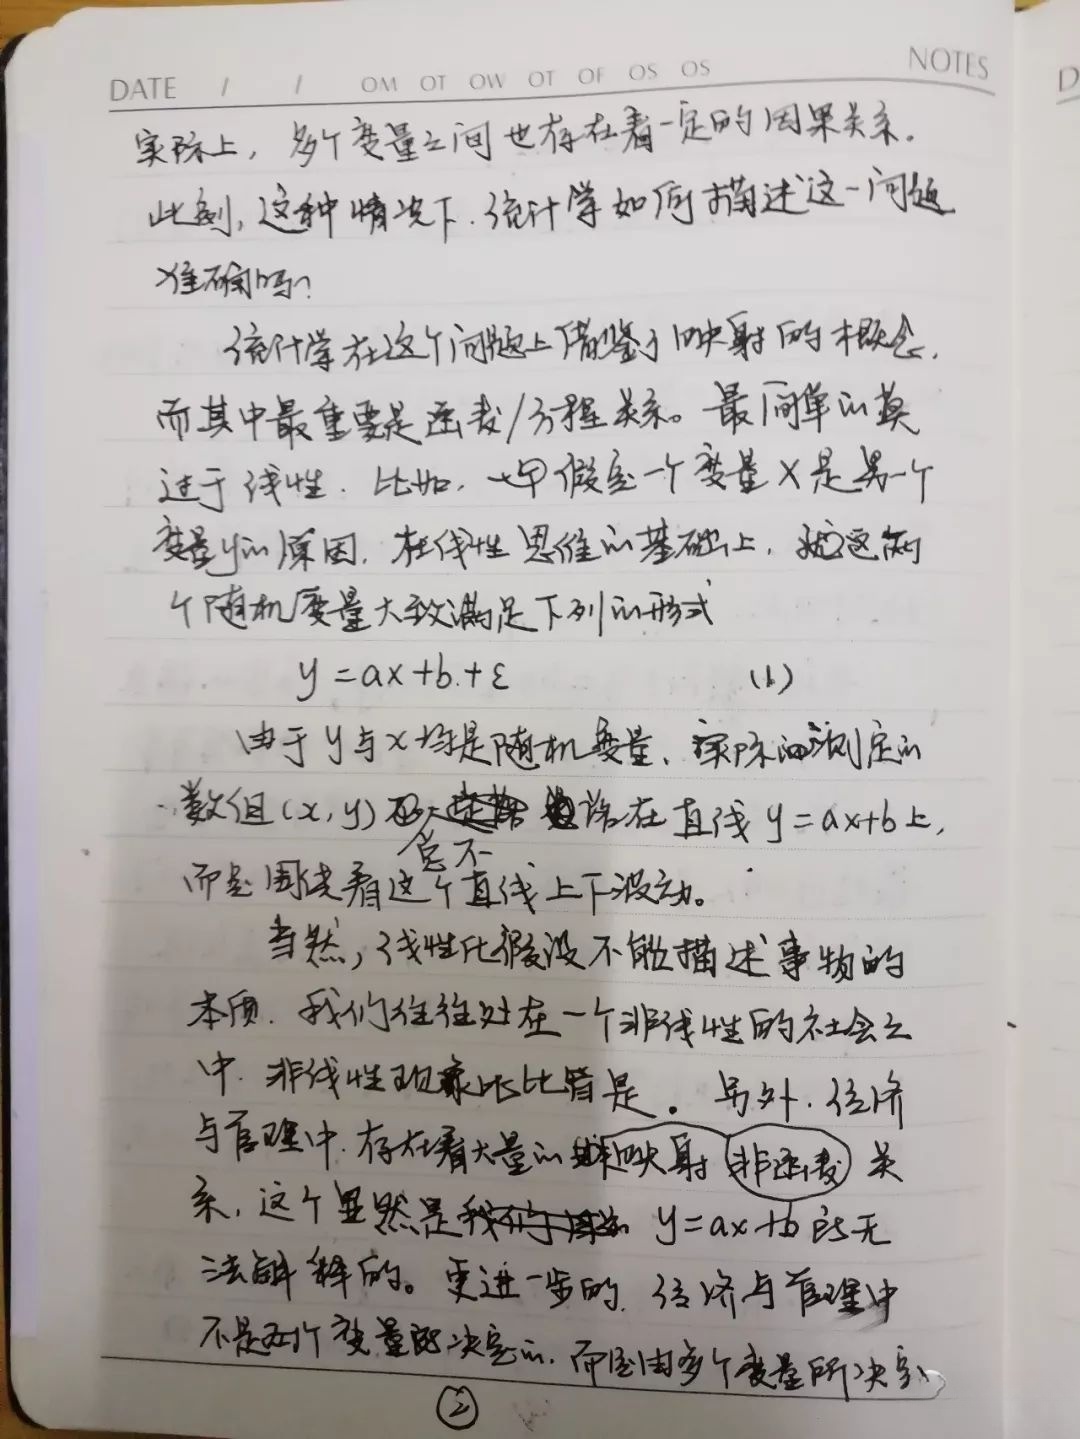 DATE / / OM OT OW OT OF OS OS NOTES
实际上，多个变量之间也存在着一定的因果关系.
此刻,这种情况下.统计学如何描述这一问题
准确吗?
统计学在这个问题上借鉴了映射的概念.
而其中最重要是函数/方程关系。最简单的莫
过于线性.比如,假定一个变量X是另一个
变量y的原因.在线性思维的基础上,这两
个随机变量大致满足下列的形式
y=ax+b+ε (1)
由于y与x均是随机变量、实际测定的
数组(x,y)总不落在直线y=ax+b上,
而是围绕着这个直线上下波动。
当然,线性化假设不能描述事物的
本质.我们往往处在一个非线性的社会之
中.非线性现象比比皆是.另外.经济
与管理中.存在着大量的映射非函数关
系,这个显然是y=ax+b所无
法解释的。更进一步的.经济与管理中
不是两个变量所决定的.而是由多个变量所决定
②